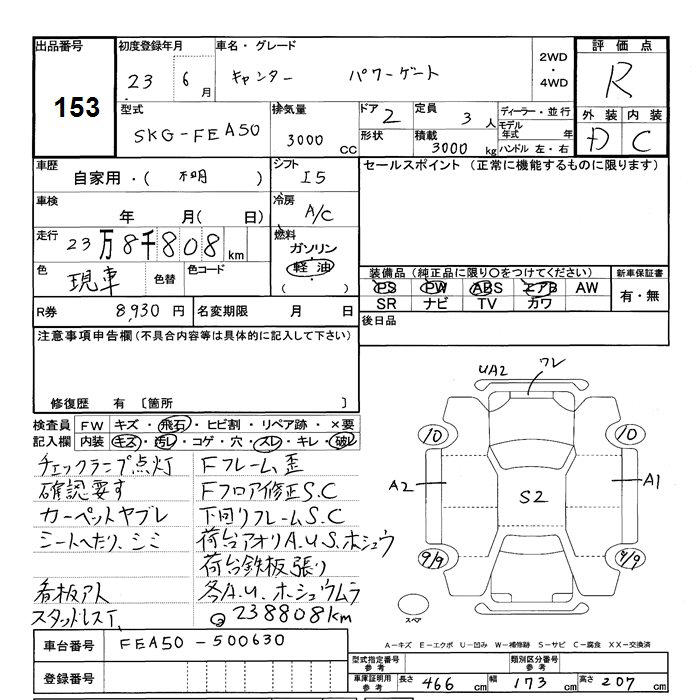 出品番号
153
初度登録年月
23 6 月
車名・グレード
キャンター パワーゲート
2WD
・
4WD
評価点
R
型式
SKG-FEA50
排気量
3000 CC
ドア 2
形状
定員 3 人
積載 3000 kg
ディーラー・並行
モデル年式 年
ハンドル 左・右
外装 内装
D C
車歴
自家用・( 不明 )
シフト
I5
セールスポイント (正常に機能するものに限ります)
車検
年 月( 日)
冷房
A/C
走行 23万8千808 km
燃料
ガソリン
軽油
( )
色
現車
色替
色コード
装備品 (純正品に限り○をつけてください)
新車保証書
PS PW ABS エアB AW
有・無
SR ナビ TV カワ
R券 8,930 円
名変期限 月 日
後日品
注意事項申告欄(不具合内容等は具体的に記入して下さい)
修復歴 有 〔箇所 〕
検査員記入欄
FW キズ・飛石・ヒビ割・リペア跡・×要
内装 キズ・汚レ・コゲ・穴・スレ・キレ・破レ
チェックランプ点灯
確認要す
カーペットヤブレ
シートへたり、シミ
看板アト
スタッドレスT.
Fフレーム歪
Fフロア修正S.C
下回りフレームS.C
荷台アオリA.U.S.ホシュウ
荷台鉄板張り
各A.U.ホシュウムラ
238808km
UA2
ワレ
10
10
A2
S2
A1
9/9
9/9
スペア
A-キズ E-エクボ U-凹み W-補修跡 S-サビ C-腐食 XX-交換済
車台番号 FEA50-500630
登録番号
型式指定番号
参考
類別区分番号
参考
車庫証明用
参考
長さ 466 cm 幅 173 cm 高さ 207 cm